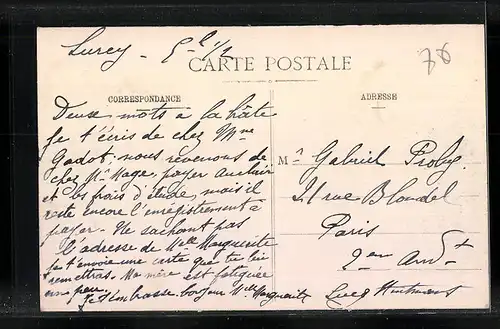 Lurcy - 5 h 1/2
78
CARTE POSTALE
CORRESPONDANCE
ADRESSE
Deux mots a la hâte
Je t'écris de chez Mme
Godot, nous revenons de
chez Mr Mage, payer
et les frais d'étude, mais il
reste encore l'enregistrement a
payer - Ne sachant pas
l'adresse de Melle Marguerite
je t'envoie une carte que tu lui
remettras. Ma mère est fatiguée
un peu. Je t'embrasse. bonjour Mlle Marguerite
Mr Gabriel
21 rue Blondel
Paris
2em Ardt